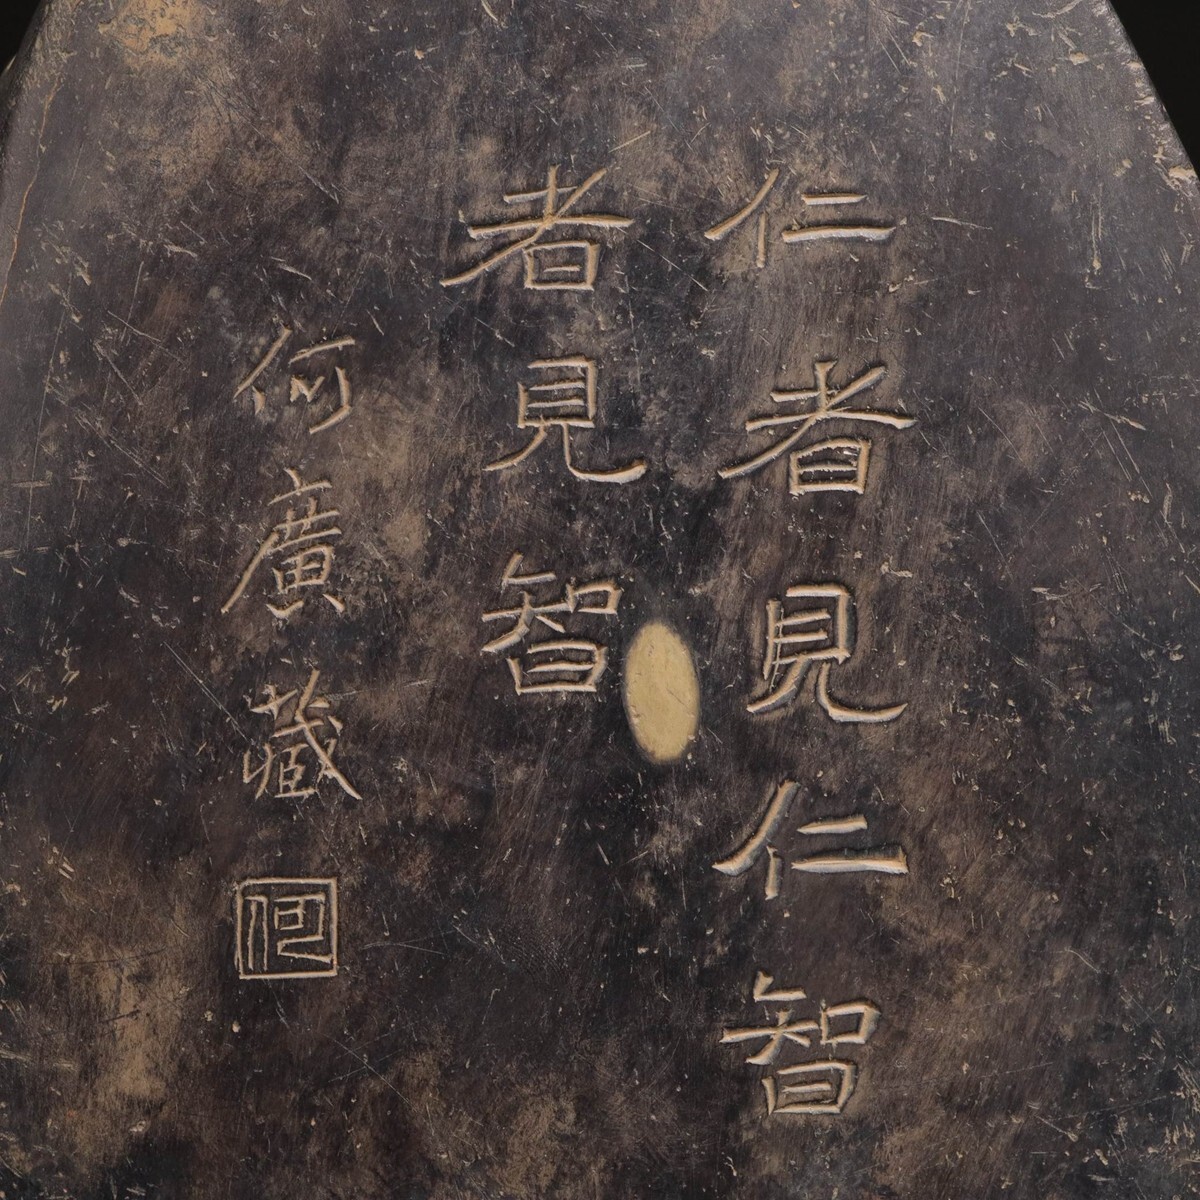 仁者見仁智
者見智
何廣藏
何